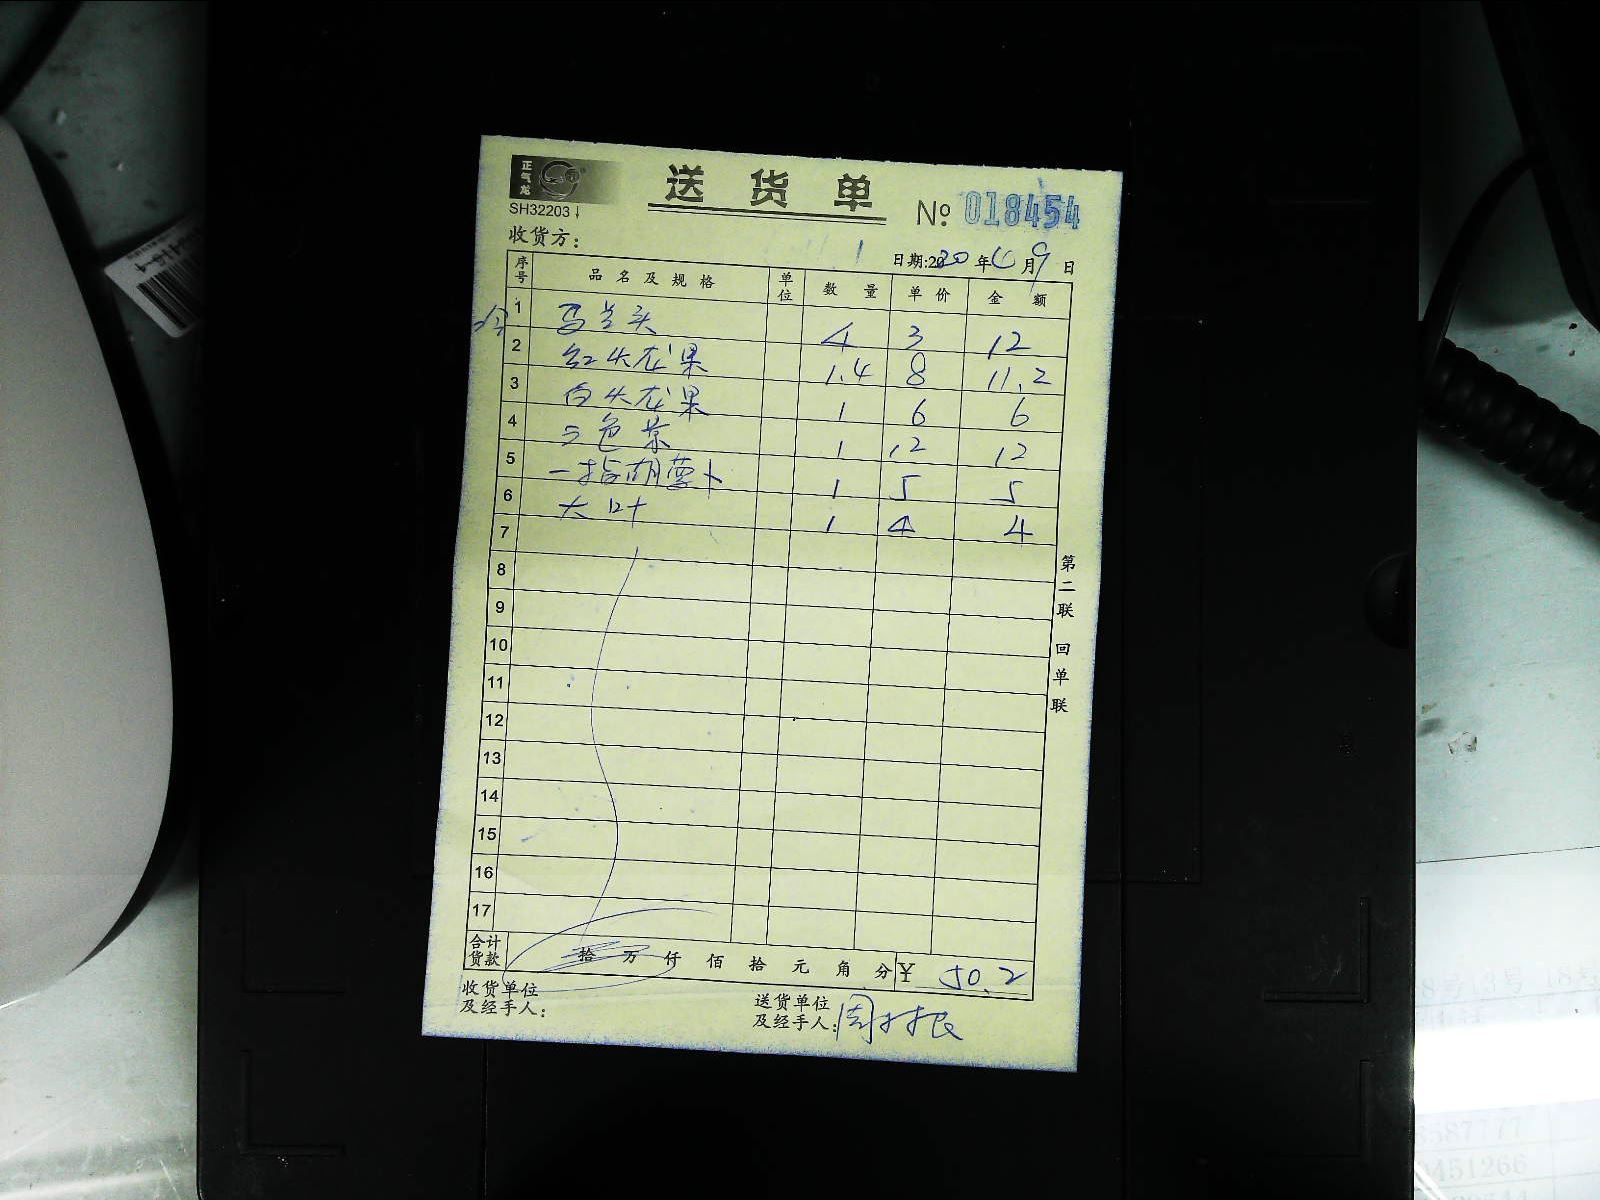 正气龙
送货单
SH32203
№ 018454
收货方：
日期:2020年6月9日
序号 品名及规格 单位 数量 单价 金额
冷
1 马兰头 4 3 12
2 红火龙果 1.4 8 11.2
3 白火龙果 1 6 6
4 三色堇 1 12 12
5 一指胡萝卜 1 5 5
6 大叶 1 4 4
7
8
9
10
11
12
13
14
15
16
17
合计货款 拾万仟佰拾元角分 ¥ 50.2
收货单位及经手人：
送货单位及经手人：周
第二联 回单联
8587777
9451266